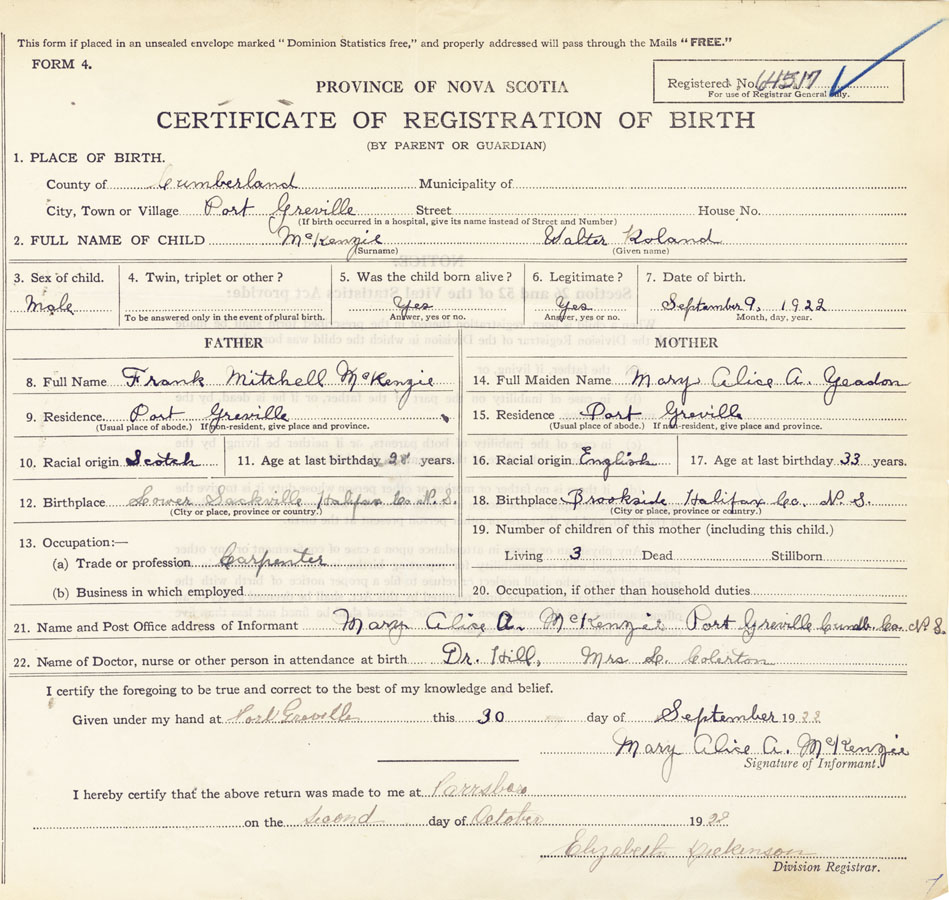 This form if placed in an unsealed envelope marked "Dominion Statistics free," and properly addressed will pass through the Mails "FREE."
FORM 4.
PROVINCE OF NOVA SCOTIA
Registered No. 64517
For use of Registrar General only.
CERTIFICATE OF REGISTRATION OF BIRTH
(BY PARENT OR GUARDIAN)
1. PLACE OF BIRTH.
County of Cumberland Municipality of
City, Town or Village Port Greville Street House No.
(If birth occurred in a hospital, give its name instead of Street and Number)
2. FULL NAME OF CHILD McKenzie Walter Roland
(Surname) (Given name)
3. Sex of child. 4. Twin, triplet or other? 5. Was the child born alive? 6. Legitimate? 7. Date of birth.
Male Yes Yes September 9, 1922
To be answered only in the event of plural birth. Answer, yes or no. Answer, yes or no. Month, day, year.
FATHER MOTHER
8. Full Name Frank Mitchell McKenzie 14. Full Maiden Name Mary Alice A. Yeadon
9. Residence Port Greville 15. Residence Port Greville
(Usual place of abode.) If non-resident, give place and province. (Usual place of abode.) If non-resident, give place and province.
10. Racial origin Scotch 11. Age at last birthday years. 16. Racial origin English 17. Age at last birthday 33 years.
12. Birthplace Lower Sackville Halifax Co. N. S. 18. Birthplace Brookside Halifax Co. N. S.
(City or place, province or country.) (City or place, province or country.)
13. Occupation:— 19. Number of children of this mother (including this child.)
(a) Trade or profession Carpenter Living 3 Dead Stillborn
(b) Business in which employed 20. Occupation, if other than household duties
21. Name and Post Office address of Informant Mary Alice A. McKenzie Port Greville Cumb. Co. N. S.
22. Name of Doctor, nurse or other person in attendance at birth Dr. Hill, Mrs
I certify the foregoing to be true and correct to the best of my knowledge and belief.
Given under my hand at Port Greville this 30 day of September 1922
Mary Alice A. McKenzie
Signature of Informant.
I hereby certify that the above return was made to me at Parrsboro
on the Second day of October 1922
Elizabeth Dickinson
Division Registrar.